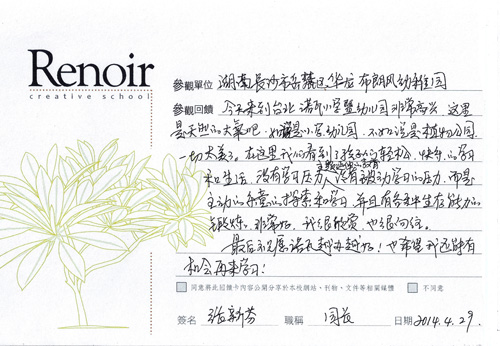 Renoir
creative school
參觀單位 湖南長沙市岳麓区华庄布朗风幼稚园
參觀回饋 今天来到台北诺瓦小学暨幼儿园非常高兴 这里
是天然的大氧吧 说是小学幼儿园 不如说是植物公园
一切太美了。在这里我们看到了孩子们轻松、快乐的学习
主题的教育
和生活，没有学习压力 没有被动学习的压力 而是
主动的乐意的探索和学习，并且有各种生存能力的
锻炼。非常好，我很欣赏，也很向往。
最后祝愿诺瓦越办越好！也希望我还能有
机会再来学习！
同意將此回饋卡內容公開分享於本校網站、刊物、文件等相關媒體 不同意
簽名 张新芬 職稱 园长 日期 2014.4.29.